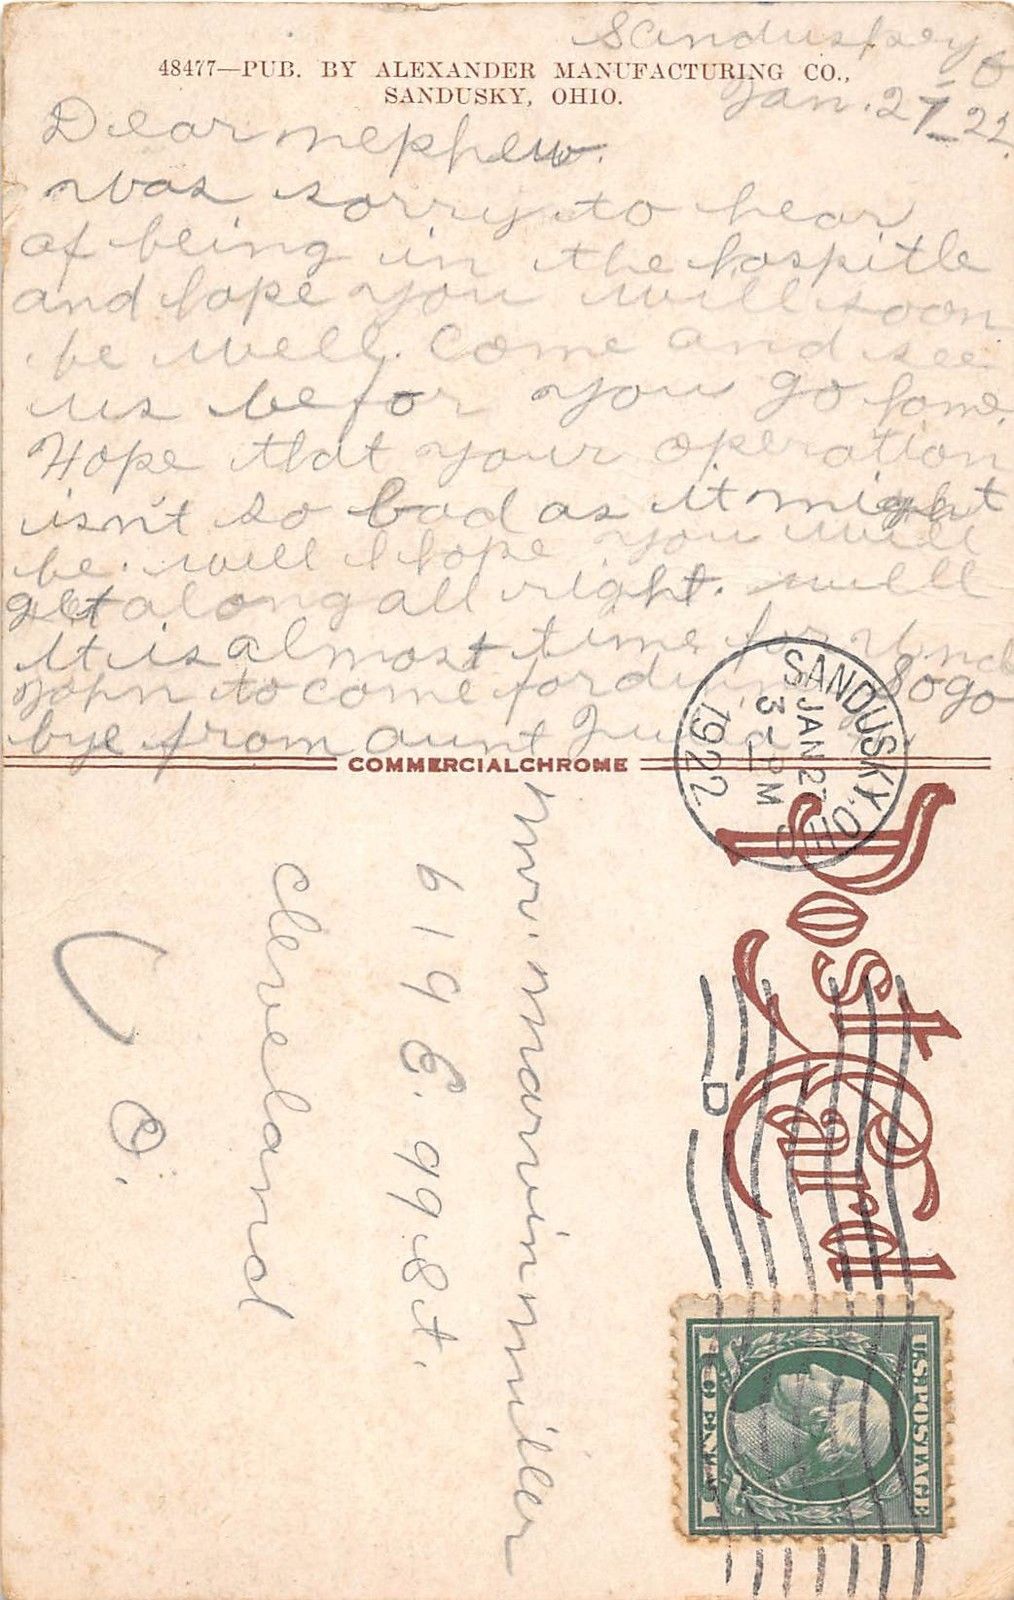 Sanduskey O
48477—PUB. BY ALEXANDER MANUFACTURING CO.,
SANDUSKY, OHIO.
Jan. 27-22.
Dear nephew.
was sorry to hear
of being in the hospitle
and hope you will soon
be well. Come and see
us befor you go home.
Hope that your operation
isn't so bad as it might
be. will I hope you will
get along all right. will
it is almost time for Unch
John to come for So go
bye from aunt
COMMERCIALCHROME
SANDUSKY, OHIO
JAN 27
3-PM
1922
Post Card
D
U.S. POSTAGE
1 CENT 1
Mr. Marvin Miller
619 E. 99 St.
Cleveland
O.